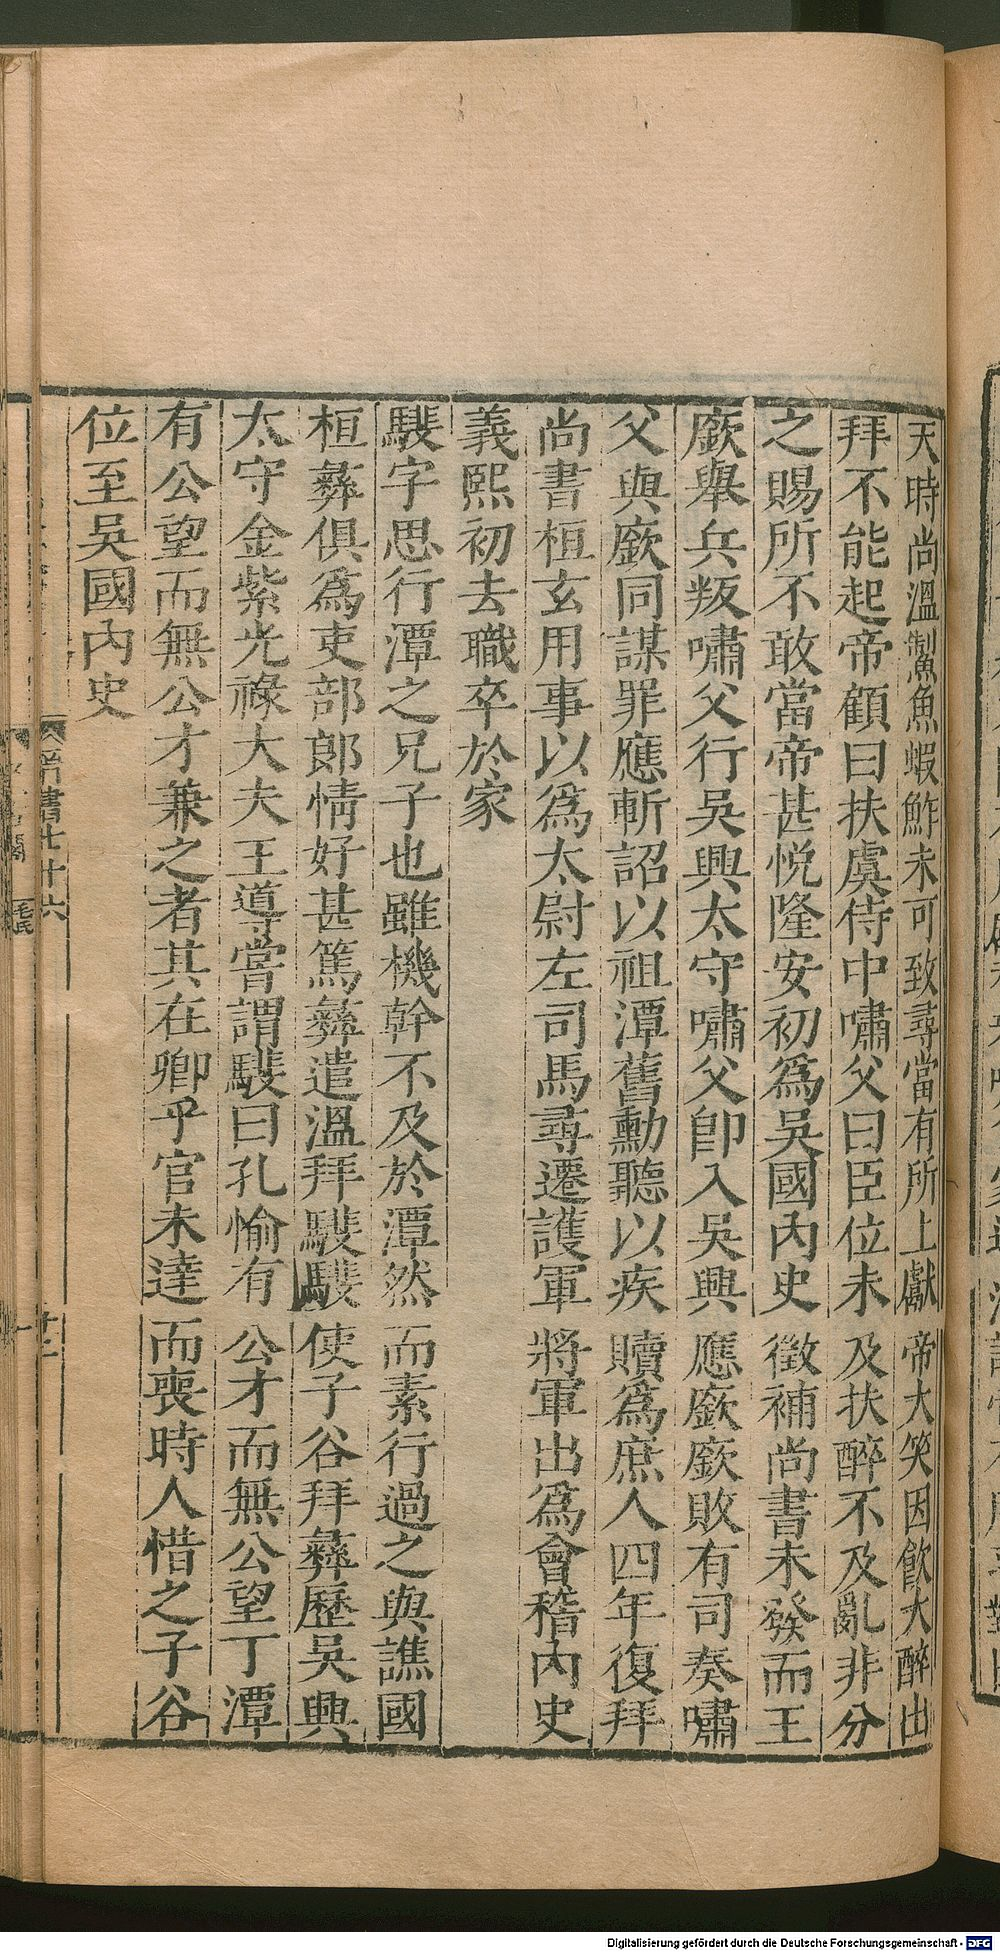 天時尚溫鮆魚蝦鮓未可致尋當有所上獻帝大笑因飲大醉出
拜不能起帝顧曰扶虞侍中嘯父曰臣位未及扶醉不及亂非分
之賜所不敢當帝甚悅隆安初爲吳國內史徵補尚書未發而王
廞舉兵叛嘯父行吳興太守嘯父卽入吳興應廞廞敗有司奏嘯
父與廞同謀罪應斬詔以祖潭舊勳聽以疾贖爲庶人四年復拜
尚書桓玄用事以爲太尉左司馬尋遷護軍將軍出爲會稽內史
義熙初去職卒於家
𩥉字思行潭之兄子也雖機幹不及於潭然而素行過之與譙國
桓彝俱爲吏部郎情好甚篤彝遣溫拜𩥉𩥉使子谷拜彝歷吳興
太守金紫光祿大夫王導嘗謂𩥉曰孔愉有公才而無公望丁潭
有公望而無公才兼之者其在卿乎官未達而喪時人惜之子谷
位至吳國內史
晉書七十六
十二
Digitalisierung gefördert durch die Deutsche Forschungsgemeinschaft - DFG